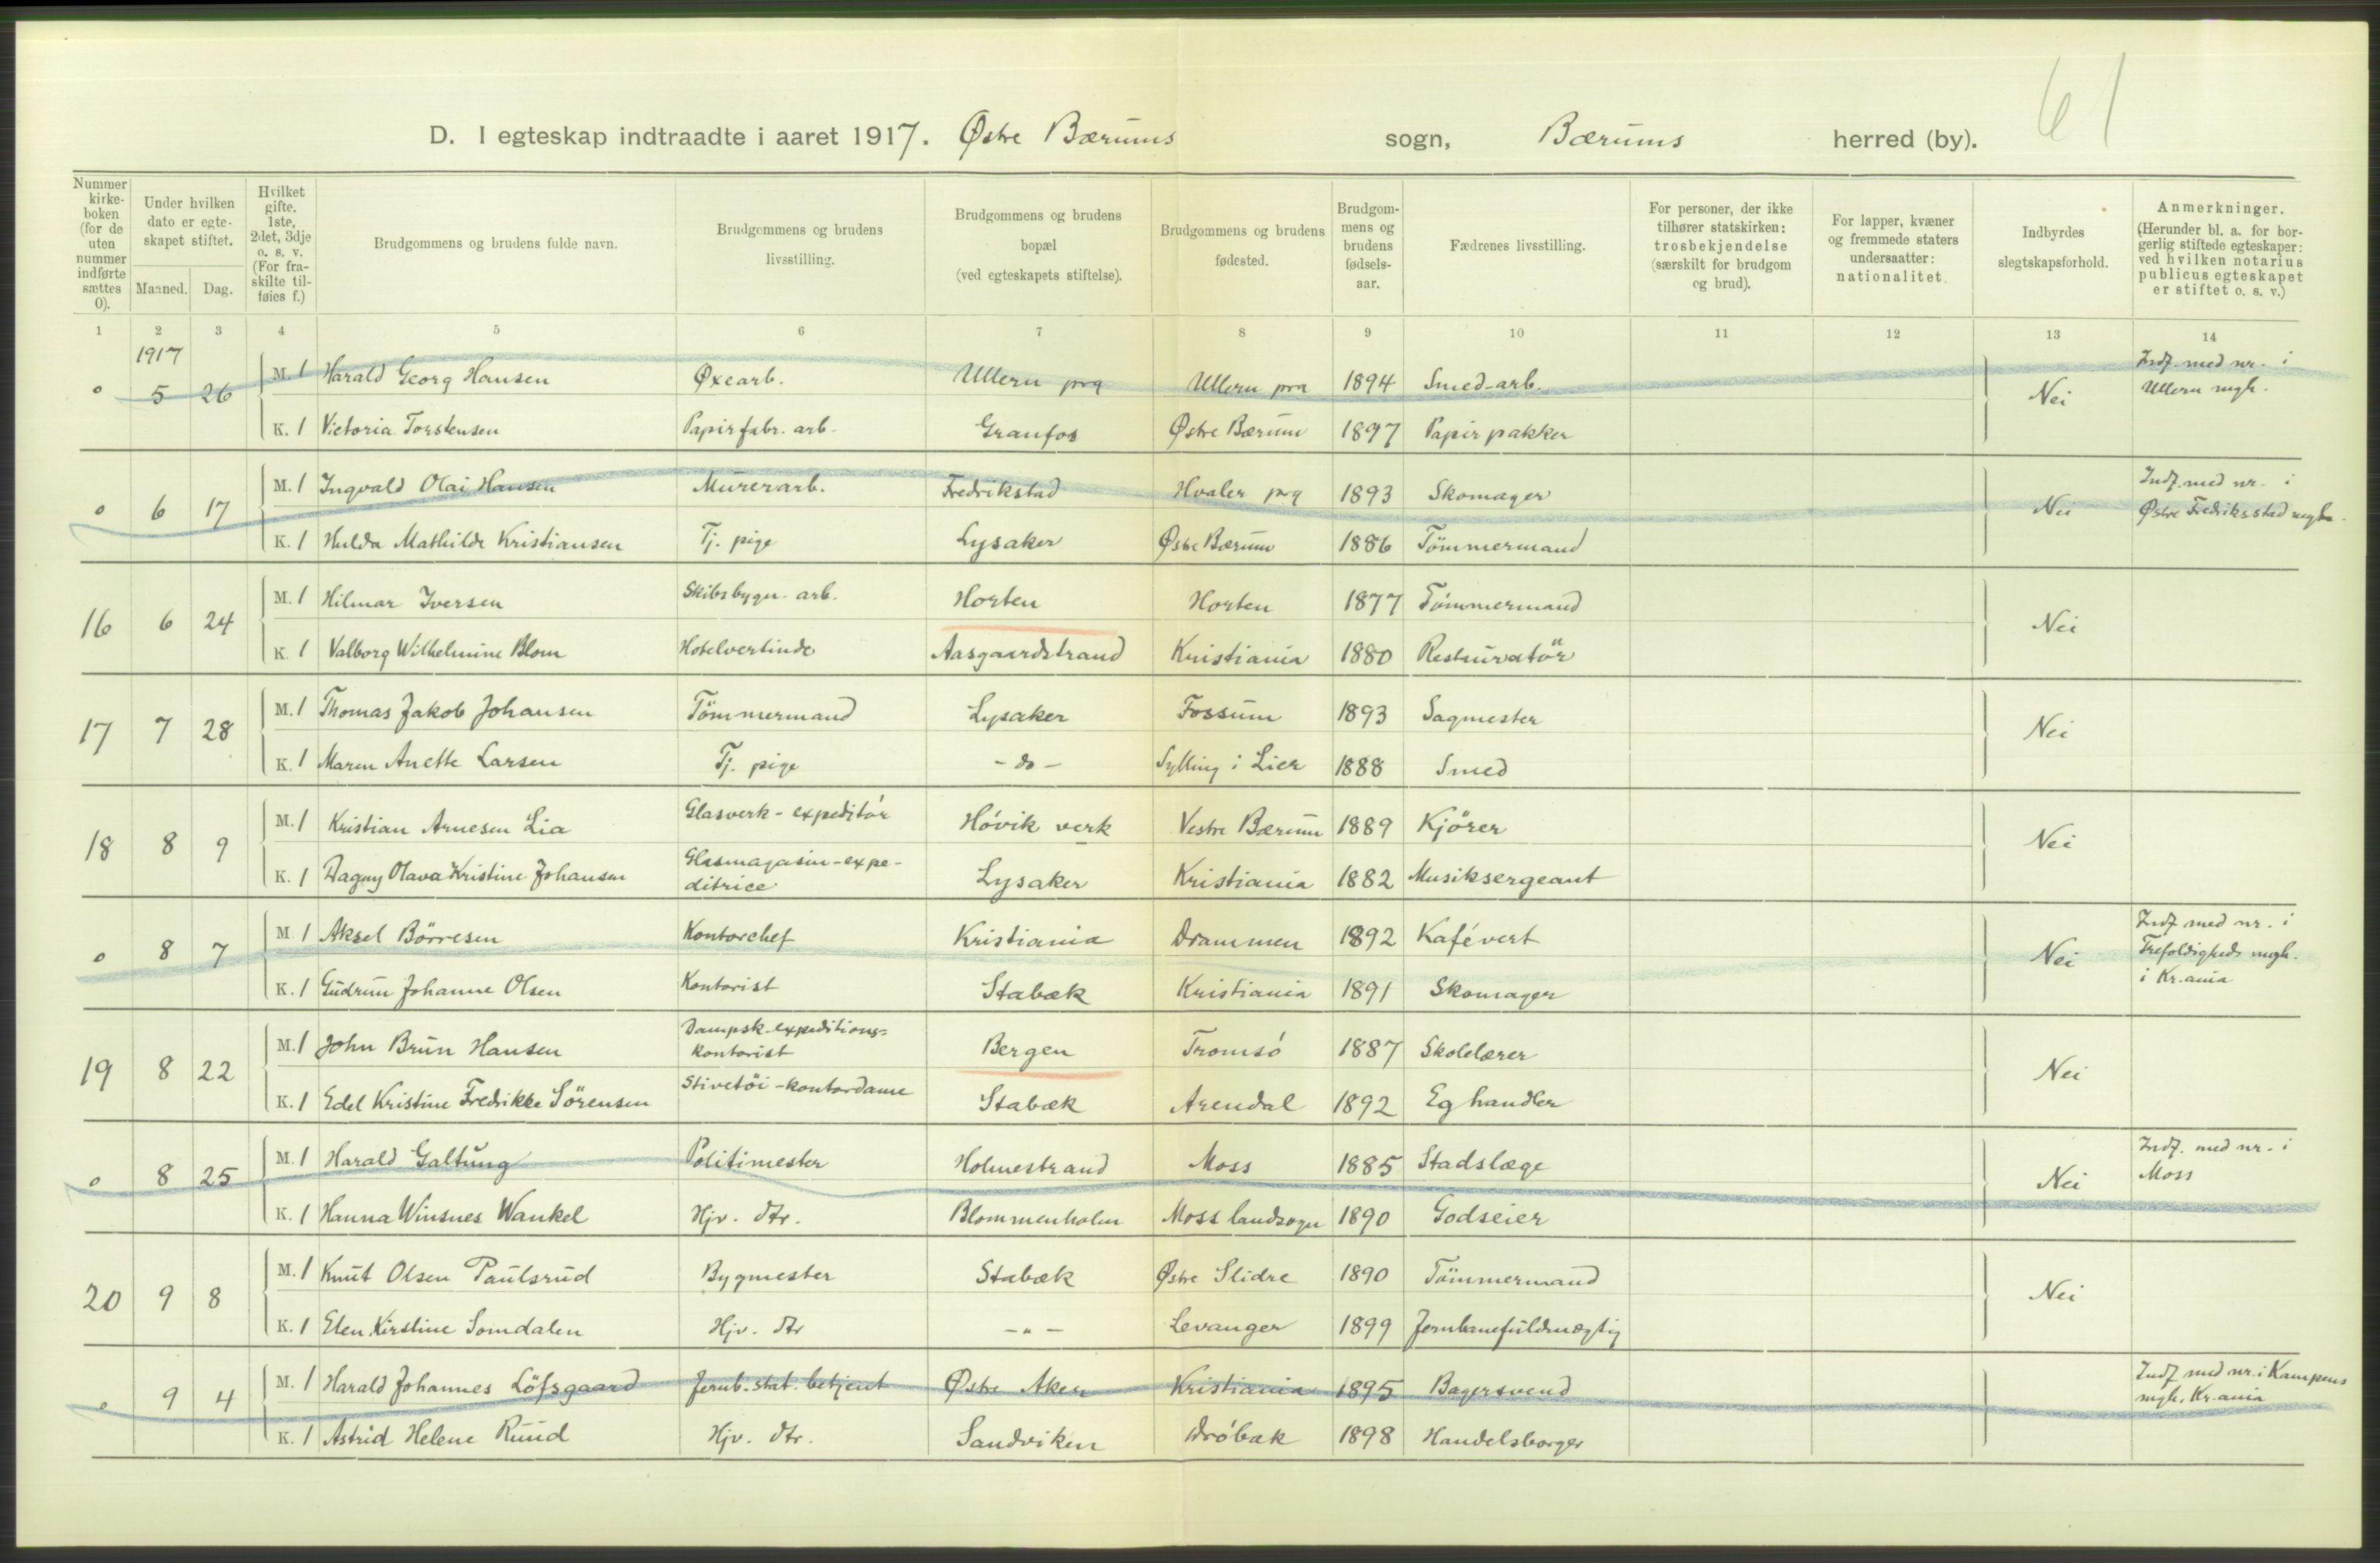 61
D. I egteskap indtraadte i aaret 1917. Østre Bærums sogn, Bærums herred (by).
Nummer kirke-boken (for de uten nummer indførte sættes 0).
Under hvilken dato er egte-skapet stiftet.
Maaned. Dag.
Hvilket gifte. 1ste, 2det, 3dje o. s. v. (For fra-skilte til-føies f.)
Brudgommens og brudens fulde navn.
Brudgommens og brudens livsstilling.
Brudgommens og brudens bopæl (ved egteskapets stiftelse).
Brudgommens og brudens fødested.
Brudgom-mens og brudens fødsels-aar.
Fædrenes livsstilling.
For personer, der ikke tilhører statskirken: trosbekjendelse (særskilt for brudgom og brud).
For lapper, kvæner og fremmede staters undersaatter: nationalitet.
Indbyrdes slegtskapsforhold.
Anmerkninger. (Herunder bl. a. for bor-gerlig stiftede egteskaper: ved hvilken notarius publicus egteskapet er stiftet o. s. v.)
1 2 3 4 5 6 7 8 9 10 11 12 13 14
1917
0 5 26 M. 1 Harald Georg Hansen Øxearb. Ullern prg Ullern prg 1894 Smed-arb. Nei Indf. med nr. i Ullern mgh.
K. 1 Victoria Torstensen Papirfabr. arb. Granfos Østre Bærum 1897 Papirpakker
0 6 17 M. 1 Ingvald Olai Hansen Murerarb. Fredrikstad Hvaler prg 1893 Skomager Nei Indf. med nr. i Østre Fredriksstad mgh.
K. 1 Hulda Mathilde Kristiansen Tj. pige Lysaker Østre Bærum 1886 Tömmermand
16 6 24 M. 1 Hilmar Iversen Skibsbygn. arb. Horten Horten 1877 Tömmermand Nei
K. 1 Valborg Wilhelmine Blom Hotelvertinde Aasgaardstrand Kristiania 1880 Restauratör
17 7 28 M. 1 Thomas Jakob Johansen Tömmermand Lysaker Fossum 1893 Sagmester Nei
K. 1 Maren Anette Larsen Tj. pige - do - Sylling i Lier 1888 Smed
18 8 9 M. 1 Kristian Arnesen Lia Glasverk-expeditör Hövik verk Vestre Bærum 1889 Kjörer Nei
K. 1 Dagny Olava Kristine Johansen Glasmagasin-expe-ditrice Lysaker Kristiania 1882 Musiksergeant
0 8 7 M 1 Aksel Börresen Kontorchef Kristiania Drammen 1892 Kafévert Nei Indf med nr. i Trefoldigheds mgh. i Kr.ania
K. 1 Gudrun Johanne Olsen Kontorist Stabæk Kristiania 1891 Skomager
19 8 22 M. 1 John Brun Hansen Dampsk-expeditions-kontorist Bergen Tromsö 1887 Skolelærer Nei
K. 1 Edel Kristine Fredrikke Sörensen Stivetöi-kontordame Stabæk Arendal 1892 Eghandler
0 8 25 M. 1 Harald Galtung Politimester Holmestrand Moss 1885 Stadslæge Nei Indf. med nr. i Moss
K. 1 Hanna Winsnes Wankel Hjv. dtr. Blommenholm Moss landsogn 1890 Godseier
20 9 8 M. 1 Knut Olsen Paulsrud Bygmester Stabæk Østre Slidre 1890 Tömmermand Nei
K. 1 Elen Kirstine Somdalen Hjv. dtr - " - Levanger 1899 Jernbanefuldmægtig
0 9 4 M. 1 Harald Johannes Löfsgaard Jernb.stat. betjent Østre Aker Kristiania 1895 Bagersvend Indf med nr. i Kampens mgh. Kr.ania
K. 1 Astrid Helene Ruud Hjv. dtr. Sandviken Dröbak 1898 Handelsborger